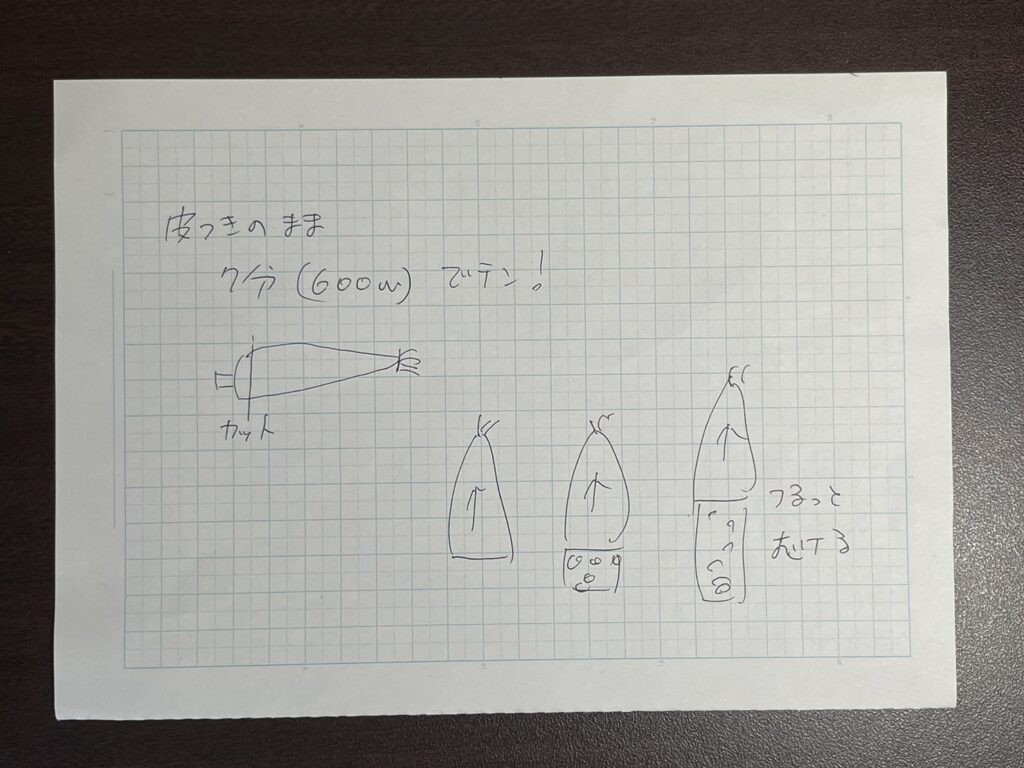 皮つきのまま
7分(600w)でチン!
カット
つるっと
むける